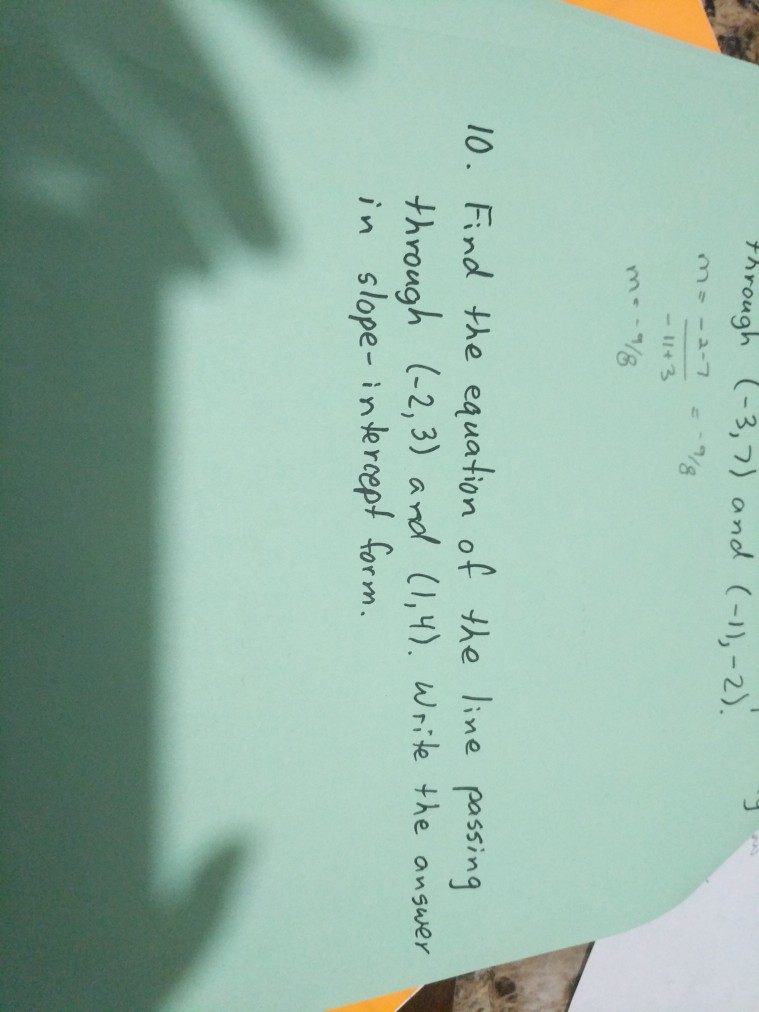 through (-3,7) and (-11,-2).
m = -2-7 / -11+3 = -9/8
m = -9/8
10. Find the equation of the line passing
through (-2,3) and (1,4). Write the answer
in slope-intercept form.